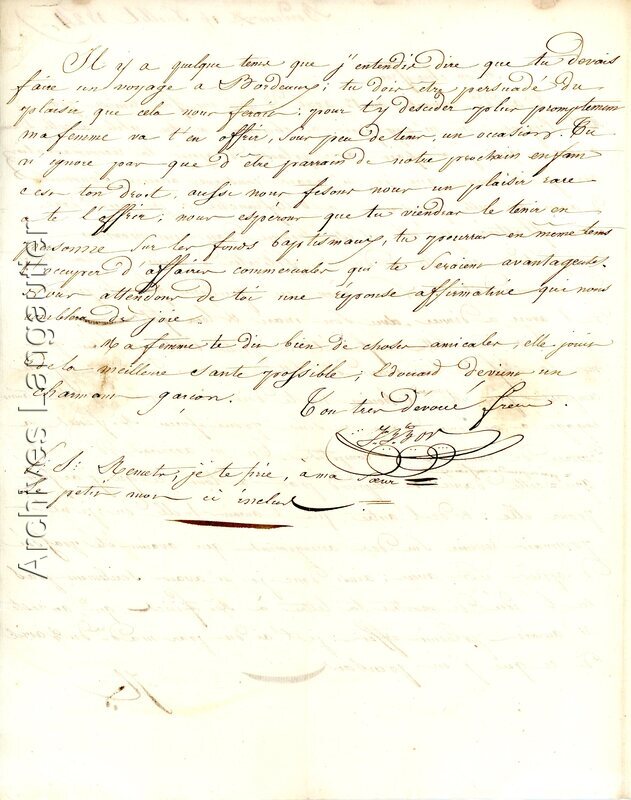 Il y a quelque tems que j'entendis dire que tu devais
faire un voyage a Bordeaux; tu dois etre persuadé du
plaisir que cela nous feroit: pour t'y descider plus promptement
ma femme va t'en offrir, sous peu de tems, un occasion. Tu
n'ignore pas que d'être parrain de notre prochain enfant
c'est ton droit, aussi nous fesons nous un plaisir rare
a te l'offrir; nous espérons que tu viendras le tenir en
personne sur les fonds baptismaux, tu pourras en même tems
t'occuper d'affaires commerciales qui te seraient avantageuses.
Nous attendons de toi une réponse affirmative que nous
comblera de joie.
Ma femme te dis bien de choses amicales, elle jouit
de la meilleure santé possible; Edouard deviens un
charmant garçon.
Ton très dévoué frere.
S: Remets, je te prie, à ma sœur
petit mot ci inclus
Archives Langautier